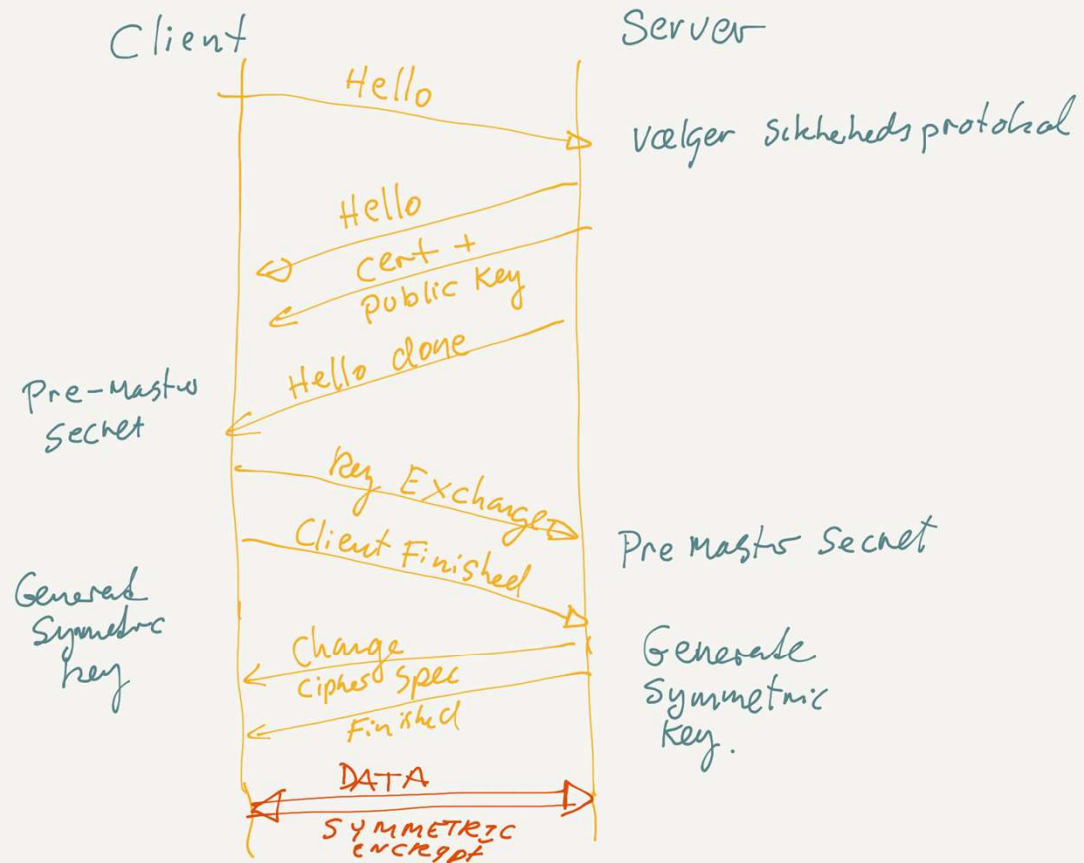 Client
Server
Hello
vælger sikkerhedsprotokol
Hello
cert +
public key
Hello done
Pre-Master
secret
Key Exchange
Client Finished
Pre Master Secret
Generate
Symmetric
key
Change
Cipher Spec
Finished
Generate
Symmetric
key.
DATA
SYMMETRIC
encrypt